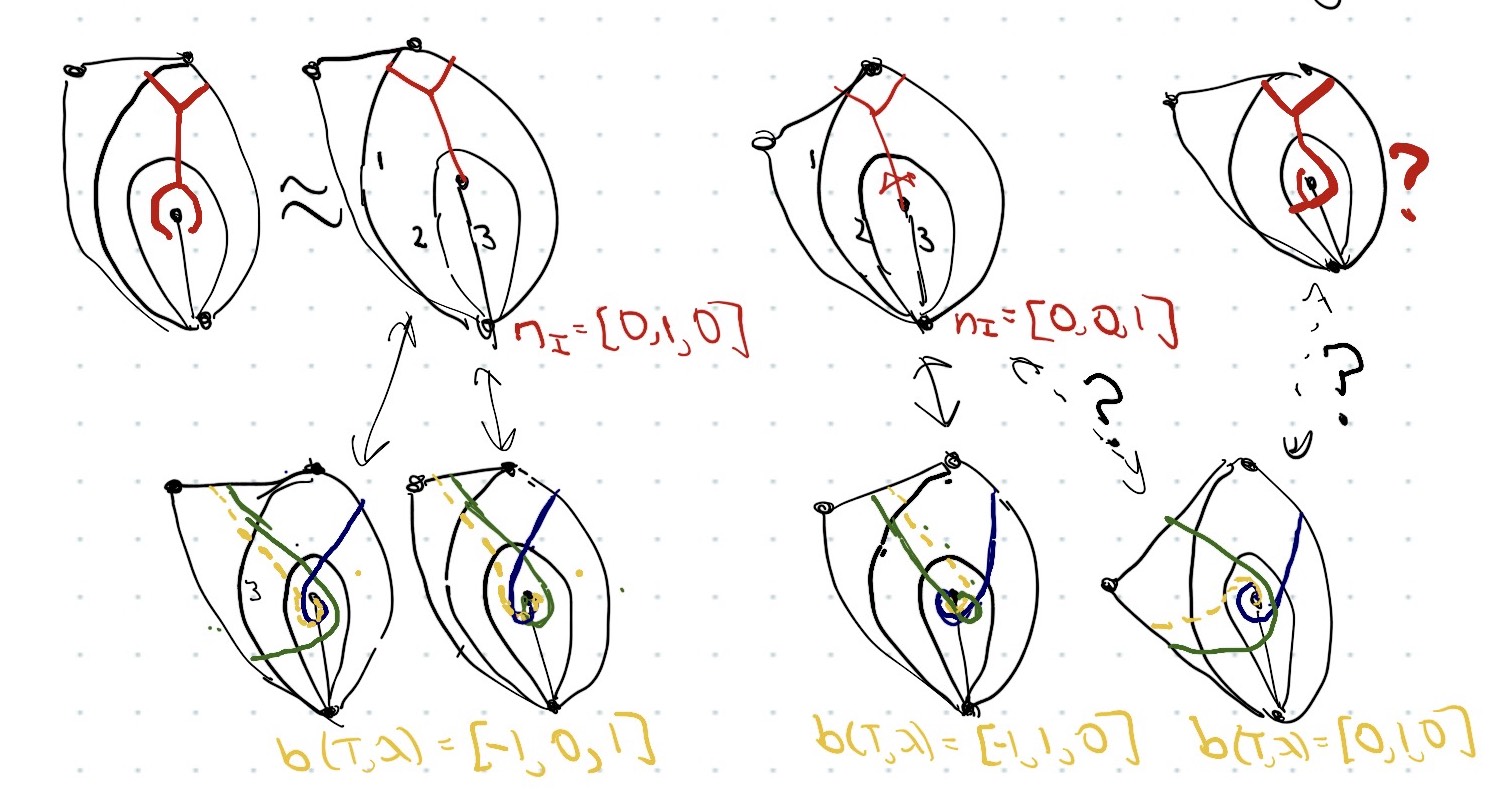 ≈
1
2
3
n_I = [0,1,0]
1
2
3
n_I = [0,0,1]
?
?
?
3
b(T,λ) = [-1,0,1]
b(T,λ) = [-1,1,0]
b(T,λ) = [0,1,0]